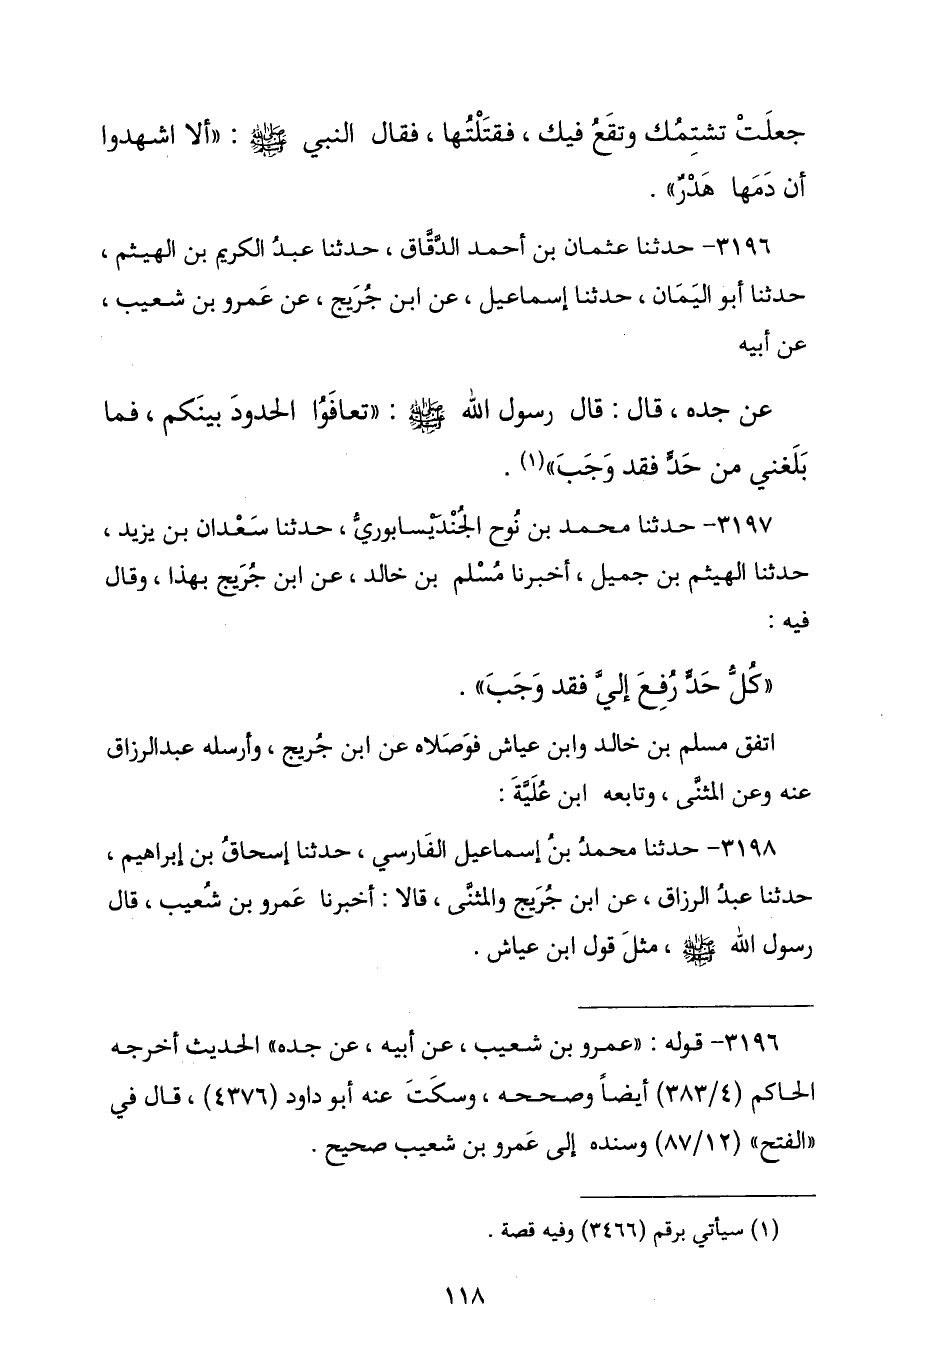 جعلَتْ تشتِمُك وتقَعُ فيك ، فقتَلْتُها ، فقال النبي ﷺ : «ألا اشهدوا
أن دَمَها هَدْرٌ» .
٣١٩٦- حدثنا عثمان بن أحمد الدَّقَّاق ، حدثنا عبدُ الكريم بن الهيثم ،
حدثنا أبو اليَمَان ، حدثنا إسماعيل ، عن ابن جُرَيج ، عن عَمرو بن شعيب ،
عن أبيه
عن جده ، قال : قال رسول الله ﷺ : «تعافَوُا الحدودَ بينَكم ، فما
بَلَغني من حَدٍّ فقد وَجَبَ»(١) .
٣١٩٧- حدثنا محمد بن نُوح الجُنْدَيْسابوريُّ ، حدثنا سَعْدان بن يزيد ،
حدثنا الهيثم بن جميل ، أخبرنا مُسْلم بن خالد ، عن ابن جُرَيج بهذا ، وقال
فيه :
«كُلُّ حَدٍّ رُفِعَ إليَّ فقد وَجَبَ» .
اتفق مسلم بن خالد وابن عياش فوَصَلاه عن ابن جُريج ، وأرسله عبدالرزاق
عنه وعن المثنَّى ، وتابعه ابن عُلَيَّةَ :
٣١٩٨- حدثنا محمدُ بنُ إسماعيل الفَارسي ، حدثنا إسحاقُ بن إبراهيم ،
حدثنا عبدُ الرزاق ، عن ابن جُرَيج والمثنَّى ، قالا : أخبرنا عَمرو بن شُعيب ، قال
رسول الله ﷺ ، مثلَ قول ابن عياش .
٣١٩٦- قوله : «عمرو بن شعيب ، عن أبيه ، عن جده» الحديث أخرجه
الحاكم (٣٨٣/٤) أيضاً وصححه ، وسكَتَ عنه أبو داود (٤٣٧٦) ، قال في
«الفتح» (٨٧/١٢) وسنده إلى عَمرو بن شعيب صحيح .
(١) سيأتي برقم (٣٤٦٦) وفيه قصة .
١١٨